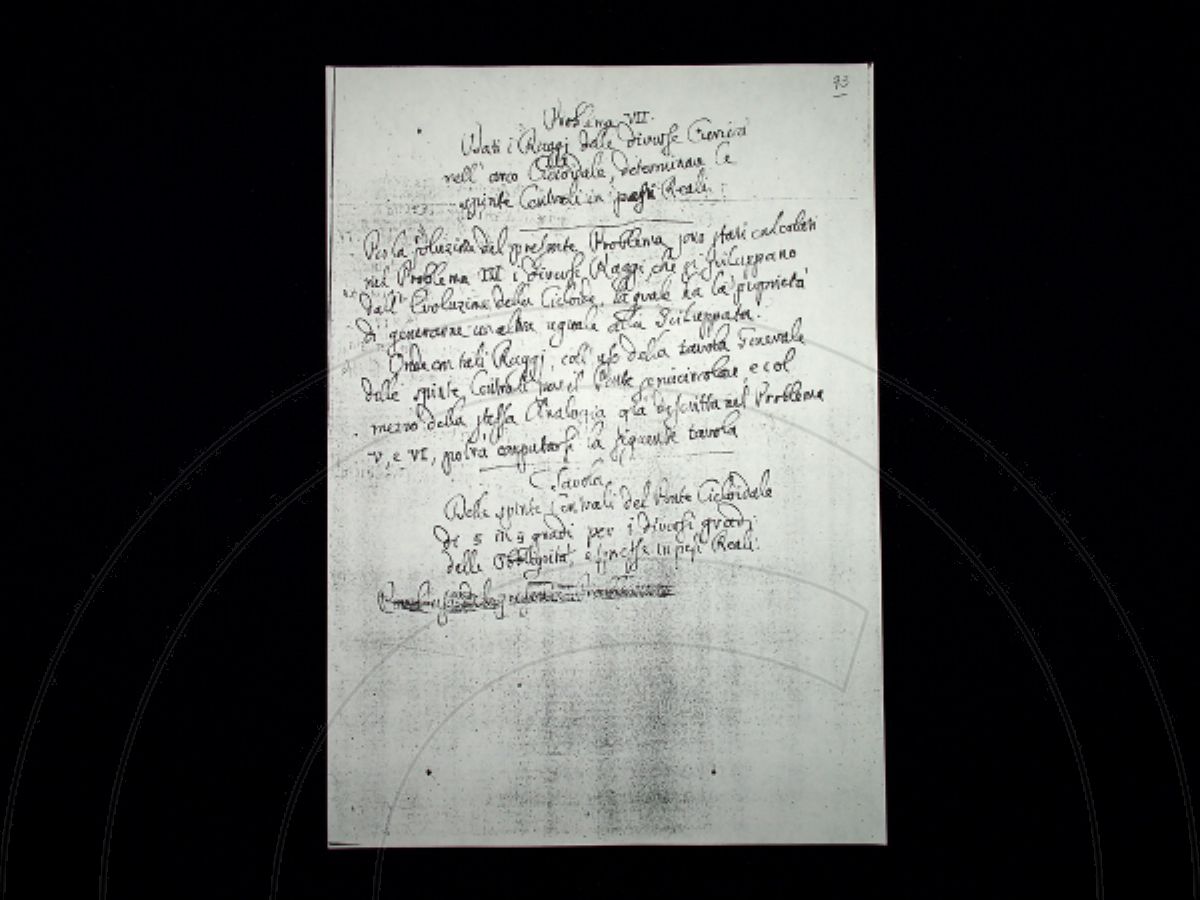 93
Problema VII.
Dati i Raggi dele diverse Crenica
nell' arco Cicloidale, determinare le
spinte Centrali in pesi Reali.
Per la soluzione del presente Problema sono stati calcolati
nel Problema III i diversi Raggi, che si sviluppano
dall' Evoluzione della Cicloide, la quale ha la proprietà
di generarne un altra uguale alla Sciluppata.
Onde con tali Raggi, coll' uso della tavola Generale
delle spinte Centrali per il Ponte semicircolare, e col
mezzo della stessa Analogia già descritta nel Problema
V, e VI, potrà computarsi la seguente tavola
Tavola
Delle spinte Centrali del Ponte Cicloidale
di 5 in 5 gradi per i diversi gradi
delle Obbliquità, espresse in pesi Reali.